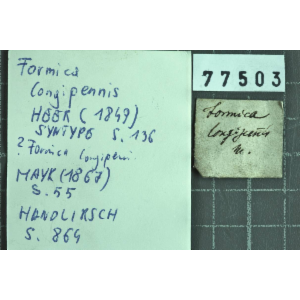 Formica
longipennis
HEER (1849)
SYNTYPE S. 136
? Formica longipenn.
MAYR (1867)
S. 55
HANDLIRSCH
S. 864
77503
Formica
longipennis
m.